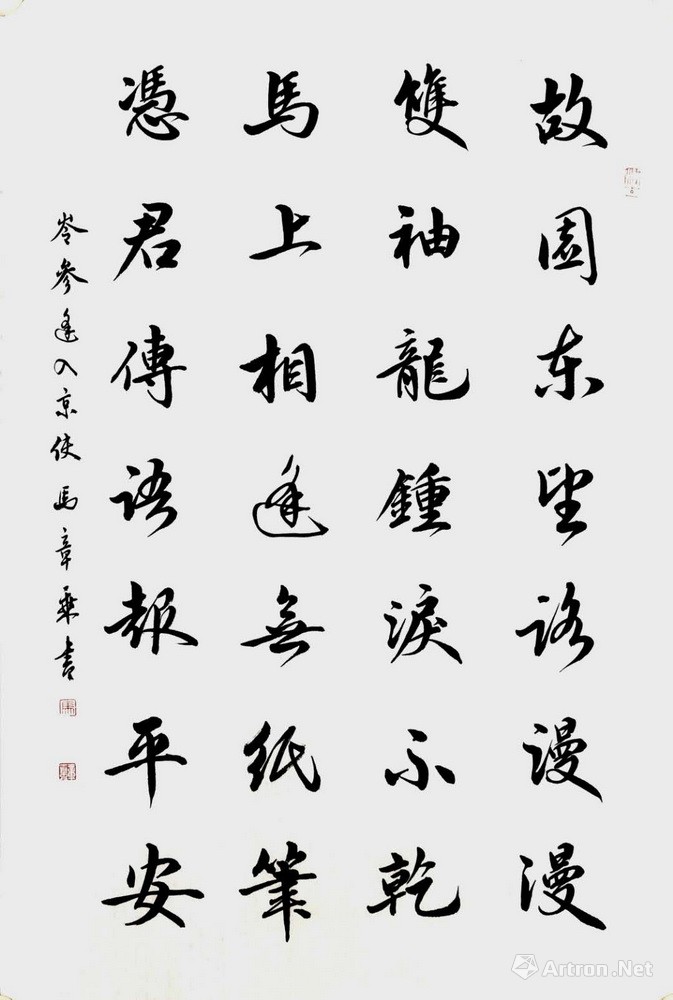 故園东望路漫漫
雙袖龍鍾淚不乾
馬上相逢無紙筆
憑君傳語報平安
岑參逢入京使馬章乘書
Artron.Net